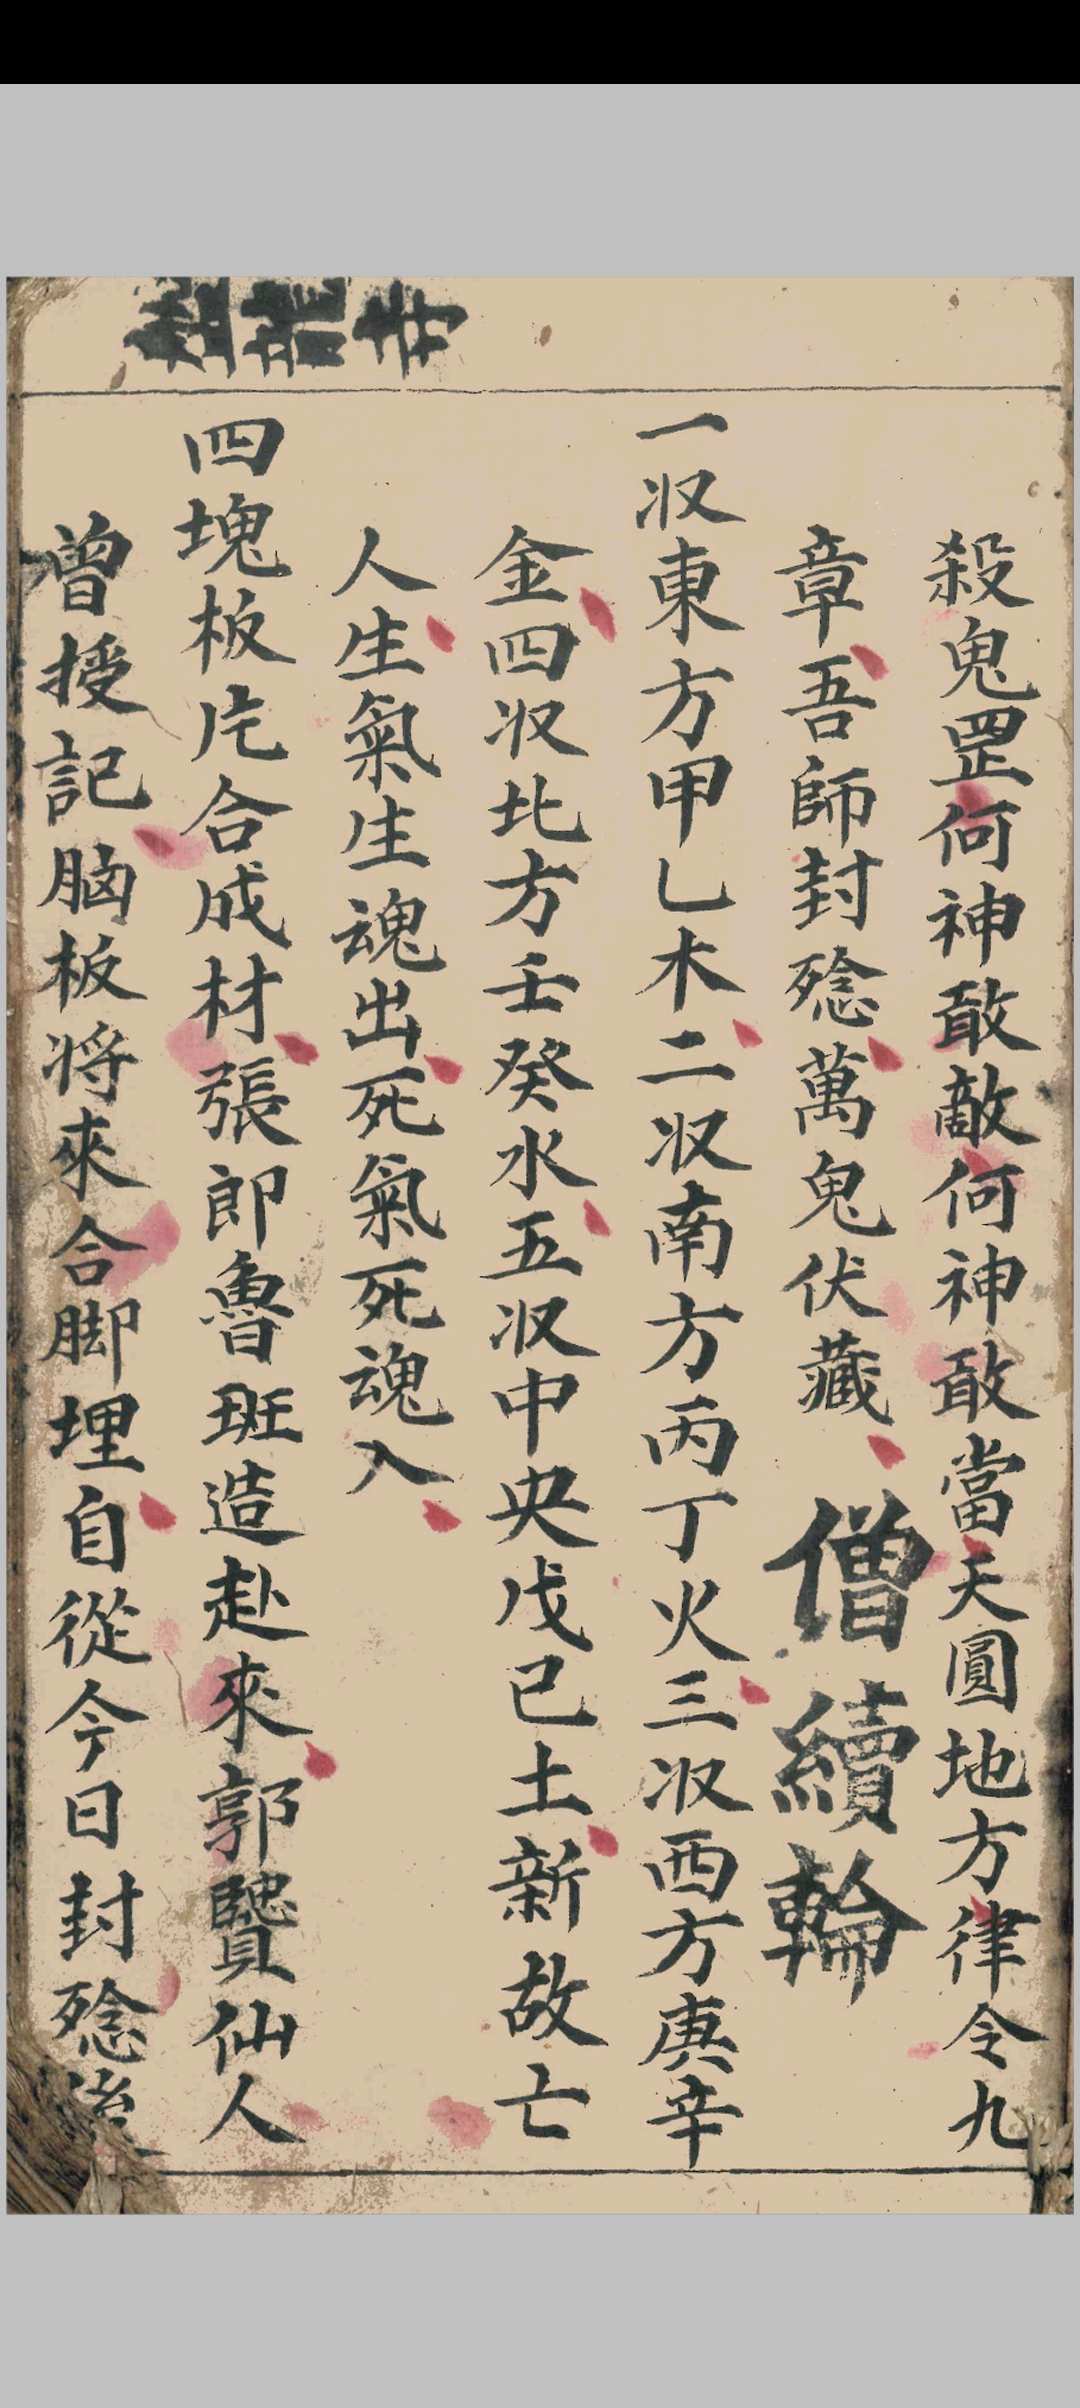 殺鬼罡何神敢敵何神敢當天圓地方律令九
章吾師封殮萬鬼伏藏
僧續輪
一収東方甲乙木二収南方丙丁火三収西方庚辛
金四収北方壬癸水五収中央戊己土新故亡
人生氣生魂出死氣死魂入
四塊板片合成材張郎魯班造赴來郭䝰仙人
曾授記腦板将來合脚埋自從今日封殮後